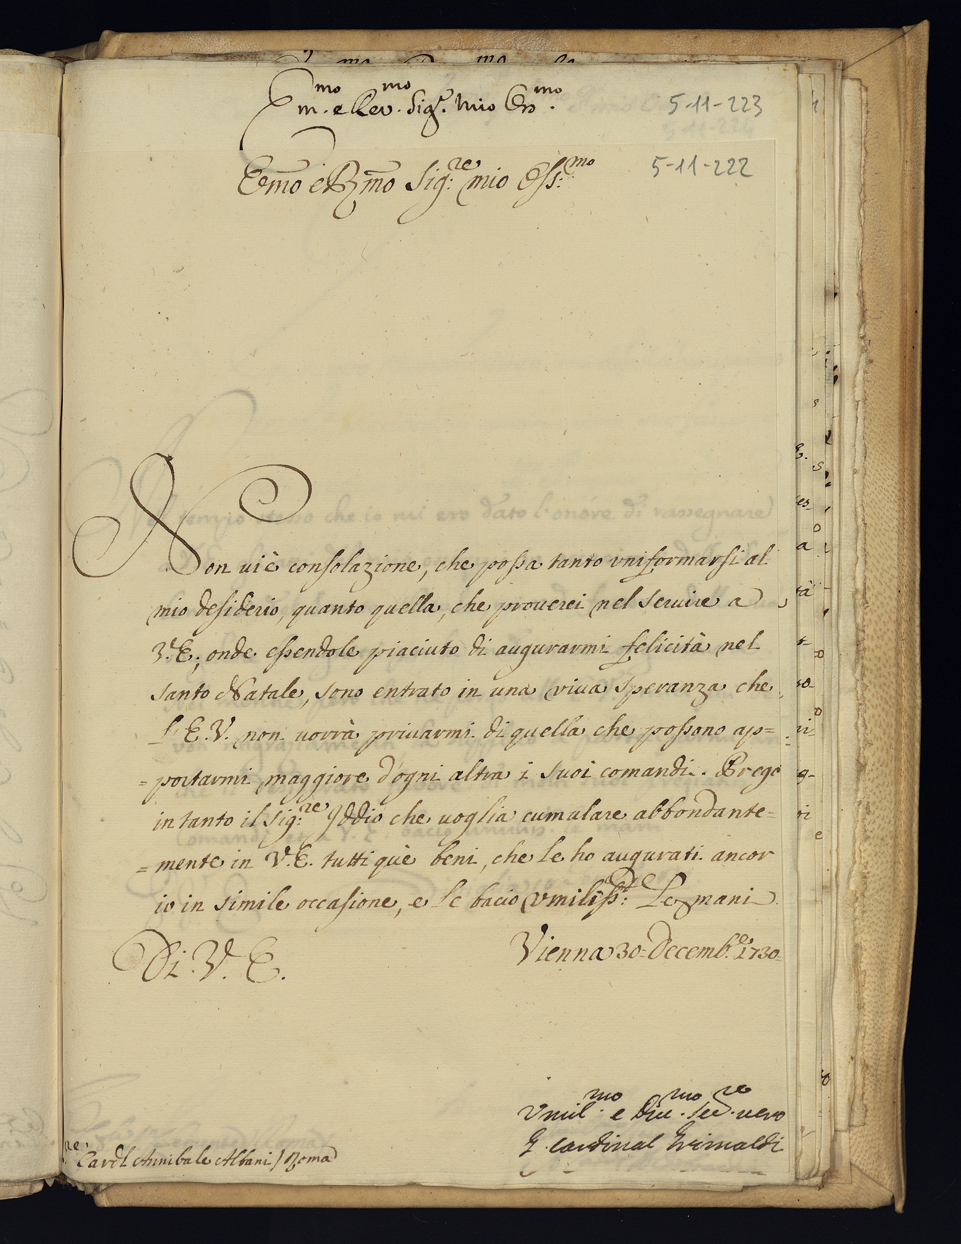 Em.mo e Rev.mo Sig.r mio Oss.mo
5-11-223
Emo e Rmo Sig:re mio Oss:mo
5-11-222
Non vi è consolazione, che possa tanto vniformarsi al
mio desiderio, quanto quella, che prouerei nel seruire a
V. E.; onde essendole piaciuto di augurarmi felicità nel
santo Natale, sono entrato in una viua speranza che
l'E. V. non uorrà priuarmi di quella che possono ap=
=portarmi maggiore d'ogni altra i suoi comandi. Prego
intanto il Sig:re Iddio che uoglia cumulare abbondante=
=mente in V. E. tutti què beni, che le ho augurati ancor
io in simile occasione, e le bacio vmiliss:te le mani
Di V. E.
Vienna 30 Decemb.e 1730
Vmil.mo e Diu.mo ser.re uero
G. Cardinal Grimaldi
Card.l Annibale Albani / Roma